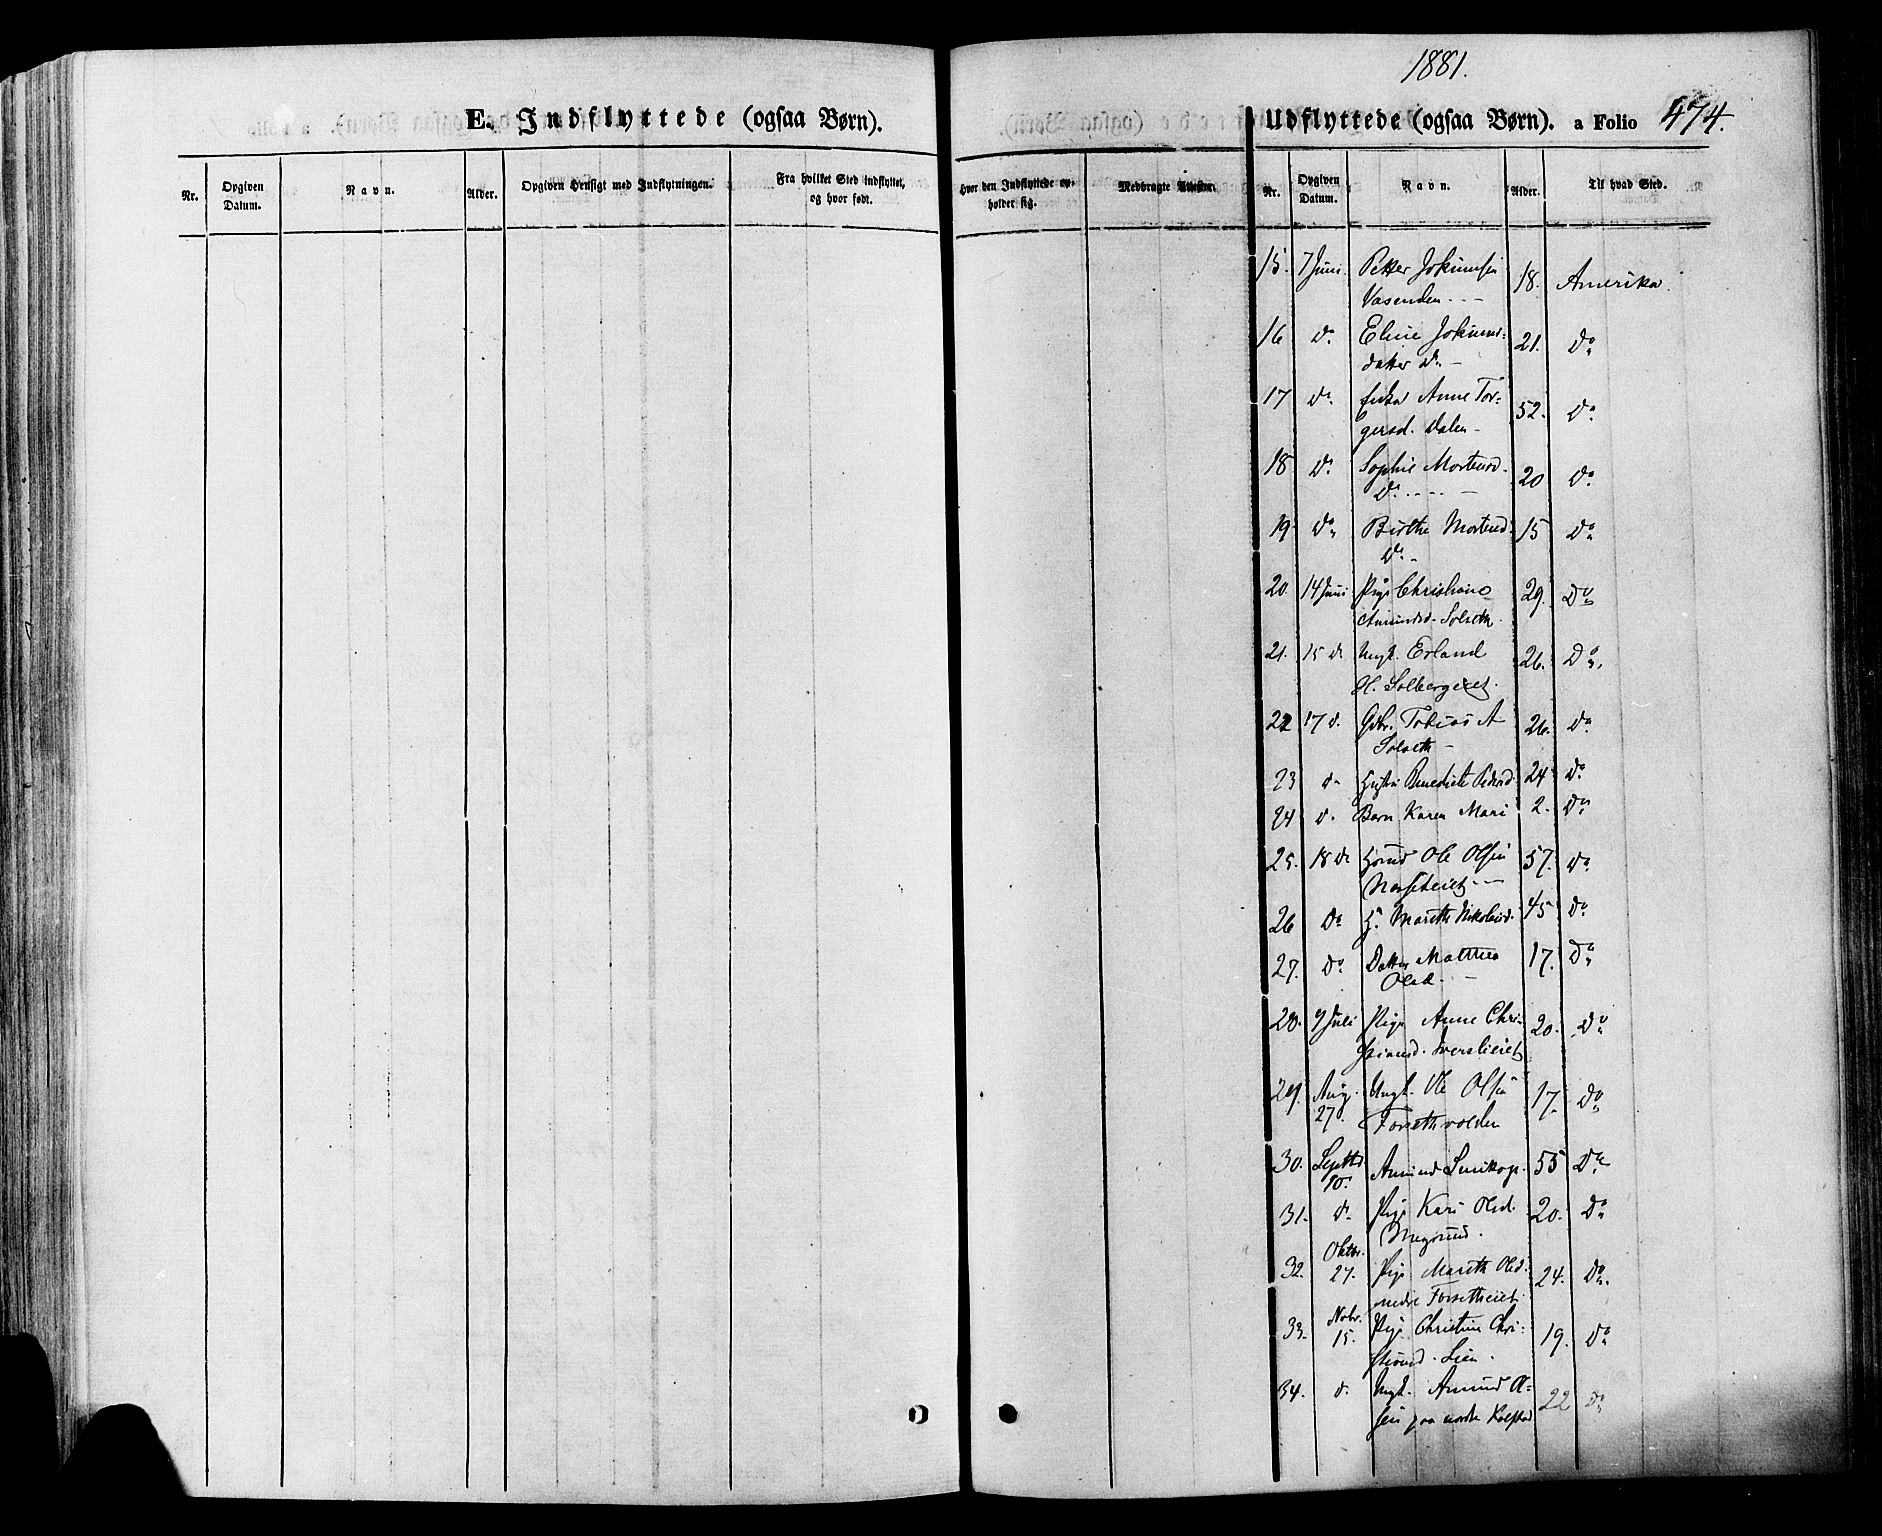 1881.
E. Indflyttede (ogsaa Børn).
Udflyttede (ogsaa Børn). a Folio 474.
Nr. Opgiven Datum. Navn. Alder. Opgiven Hensigt med Indflytningen. Fra hvilket Sted indflyttet, og hvor født. Hvor den Indflyttede opholder sig. Medbragte Attester. Nr. Opgiven Datum. Navn. Alder. Til hvad Sted.
15. 7 Juni. Petter Jokumsen 18. Amerika.
Vasenden - - -
16 do Eline Jokums- 21. do
datter do -
17 do Enka Anne Tor- 52. do
gersd. Dalen -
18 do Sophie Mortensd. 20 do
do - - - -
19 do Birthe Mortensd. 15 do
do -
20. 14 Juni Pige Christiane 29. do
Amundsd. Solseth.
21. 15 do Ungk. Erland 26. do
H. Solbergeiet.
22 17 d. Gbr. Tobias A 26. do
Solseth -
23 d. Hustru Benedicte Pedersd 24 do
24 d. Barn Karen Mari 2. do
25. 18 do Hsmd Ole Olsen 57. do
26 do H. Marethe Nikolaisd. 45 do
27. do Datter Mathea 17. do
Olsd. -
28. 9 Juli Pige Anne Chri- 20. do
stiansd.
29. Aug. 27 Ungk. Ole Olsen 17. do
Forsethvolden
30. Septbr 10. Amund 55 do
31. d. Pige Kari Olsd. 20. do
32. Oktbr. 27. Pige Mareth Olsd. 24. do
nedre Forsetheiet
33. Nobr. 15. Pige Christine Chri- 19. do
stiansd. Lien.
34. d. Ungk. Amund Ol- 22 do
sen paa nordre Kolstad